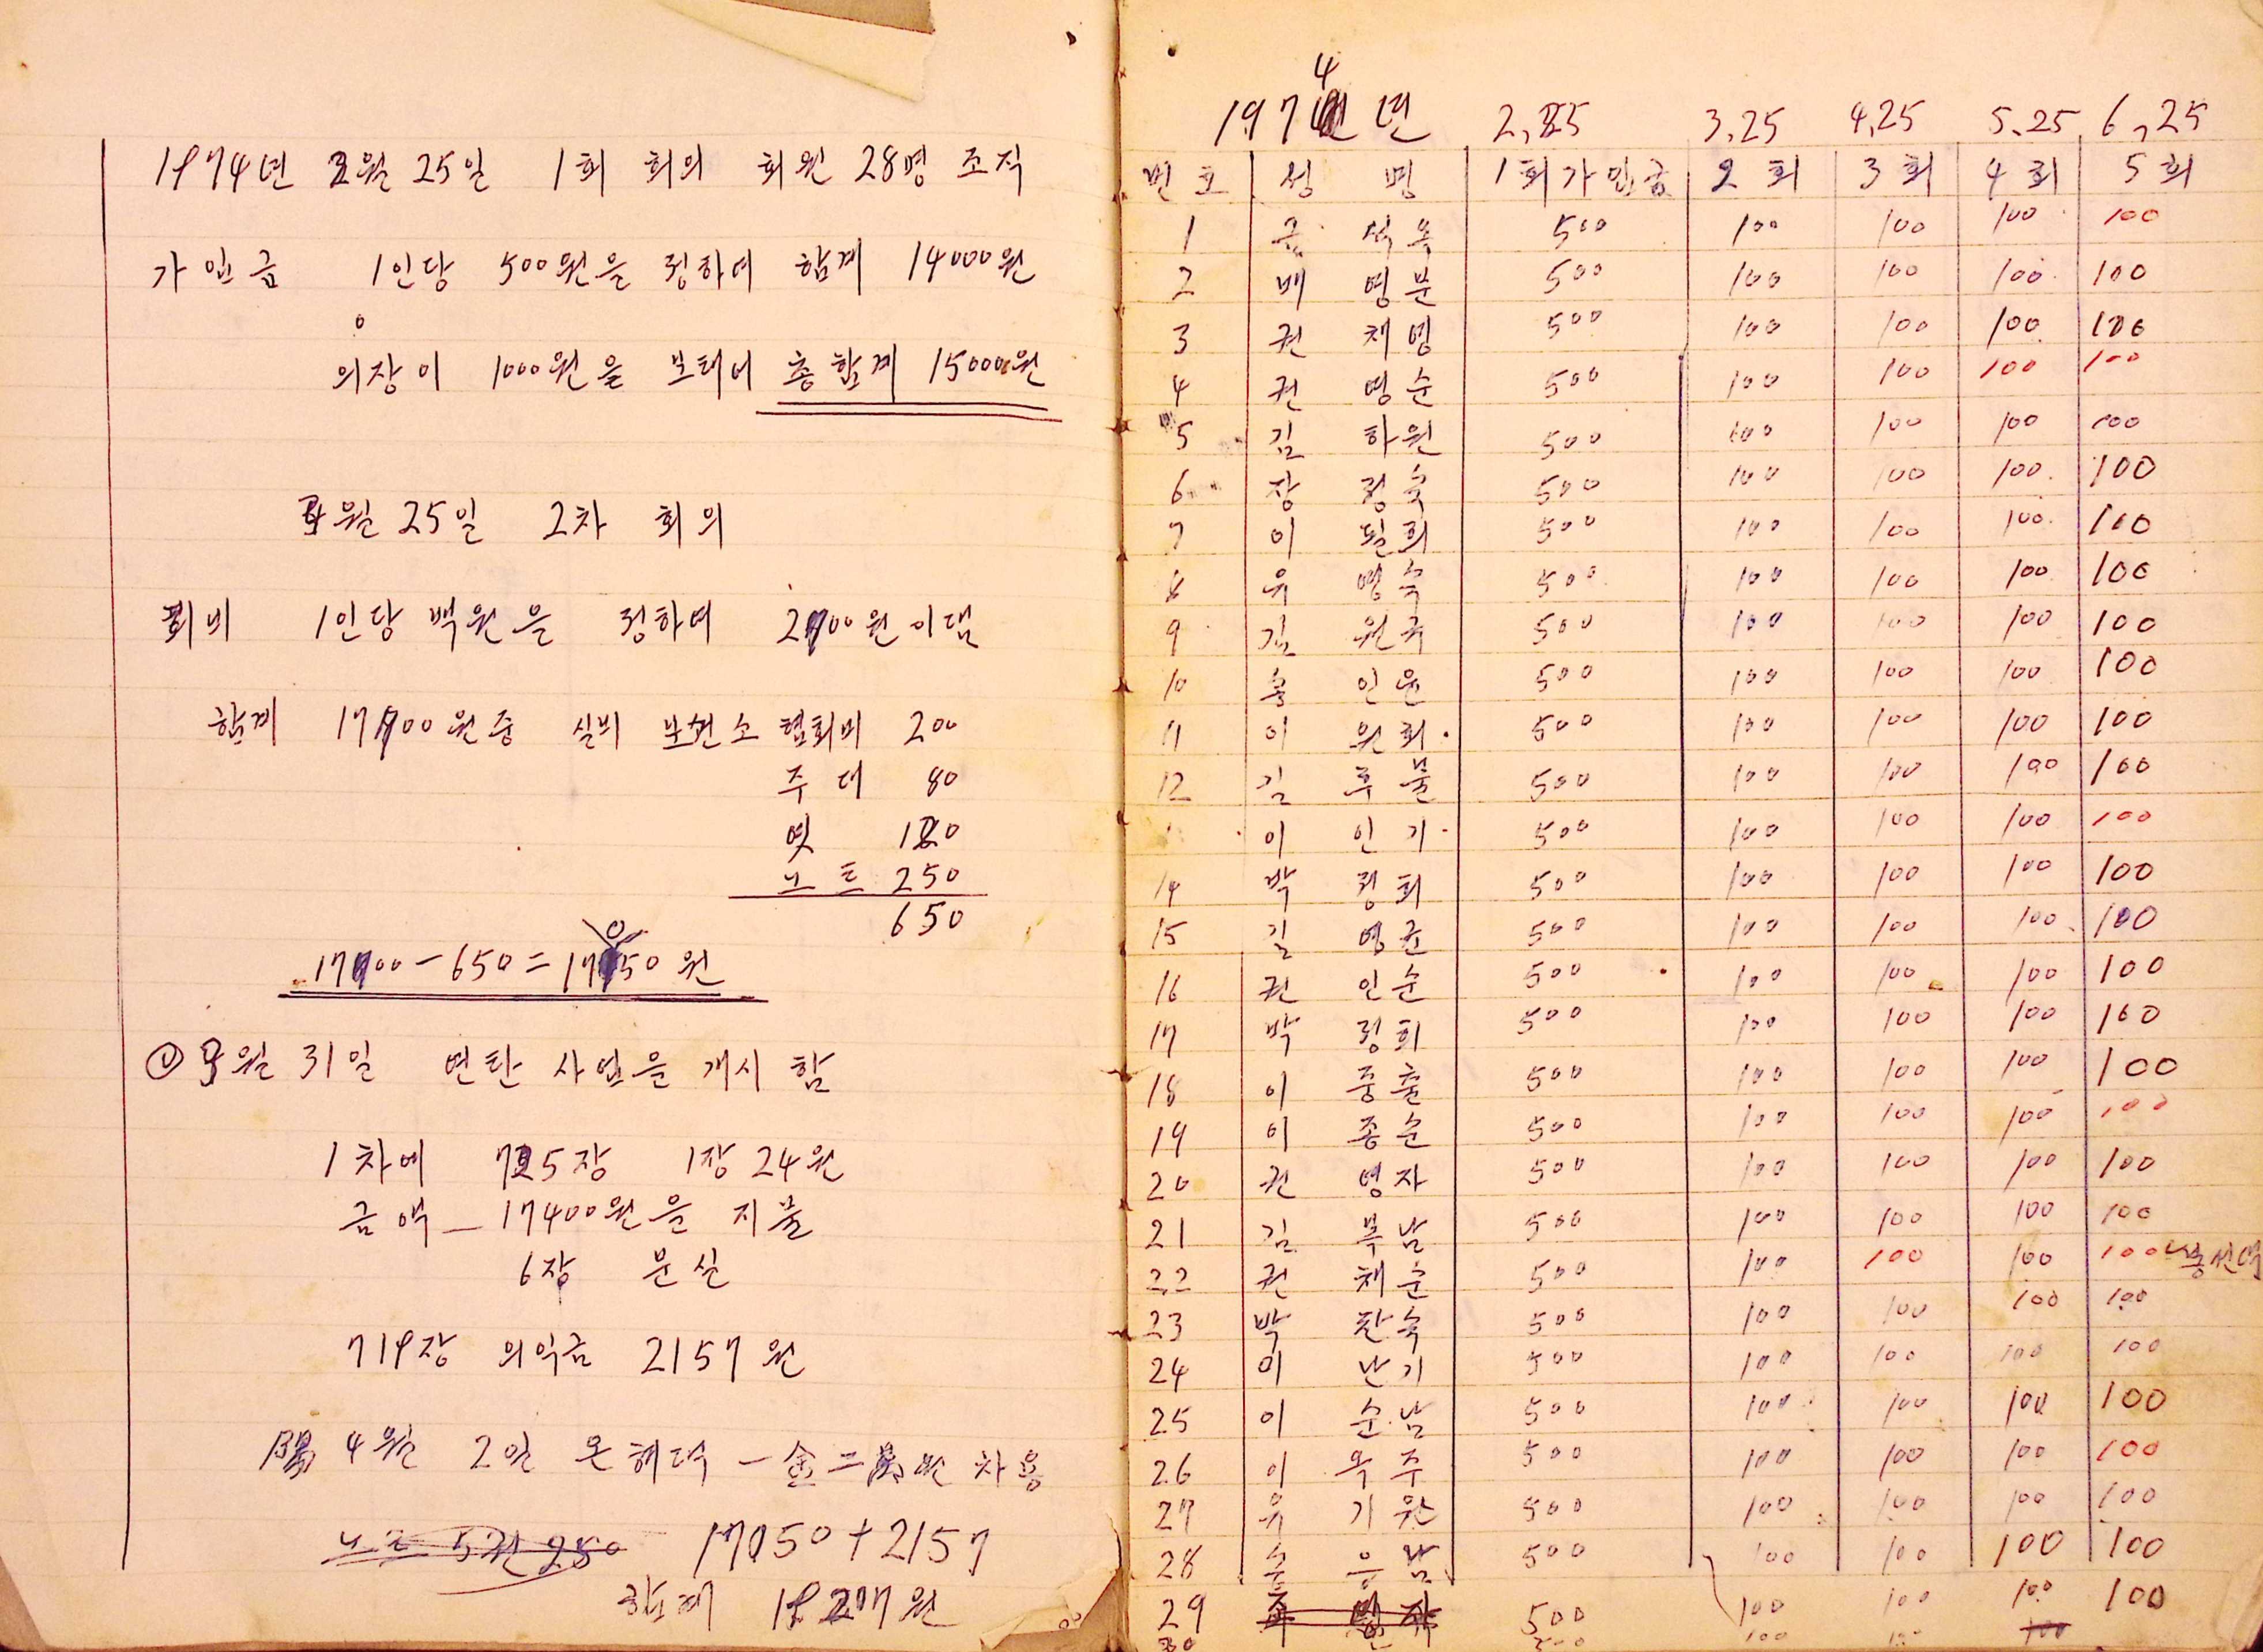 1974년 2월 25일 1회 회의 회원 28명 조직
가입금 1인당 500원을 정하여 합계 14000원
의장이 1000원을 보태어 총합계 15000원
월 25일 2차 회의
회비 1인당 백원을 정하여 2700원이댐
합계 17700원중 실비 보건소 협회비 200
주대 80
엿 120
노트 250
650
17700-650=17050원
3월 31일 연탄 사업을 개시 함
1차에 725장 1장 24원
금액 17400원을 지불
6장 분실
719장 의익금 2157원
陽 4월 2일 은혜댁 - 金二萬원 차용
노트 5권 250 17050+2157
현재 19207원
1974년 2,25 3,25 4,25 5,25 6,25
번호 성명 1회가입금 2회 3회 4회 5회
1 500 100 100 100 100
2 배영분 500 100 100 100 100
3 권채영 500 100 100 100 100
4 권영순 500 100 100 100 100
5 김하원 500 100 100 100 100
6 장정숙 500 100 100 100 100
7 이필희 500 100 100 100 100
8 유영숙 500 100 100 100 100
9 김원국 500 100 100 100 100
10 인원 500 100 100 100 100
11 이원희 500 100 100 100 100
12 김후불 500 100 100 100 100
이인기 500 100 100 100 100
14 박정희 500 100 100 100 100
15 길영준 500 100 100 100 100
16 권인순 500 100 100 100 100
17 박정희 500 100 100 100 100
18 이중출 500 100 100 100 100
19 이종순 500 100 100 100 100
20 권영자 500 100 100 100 100
21 김복남 500 100 100 100 100
22 권채순 500 100 100 100 100
23 박찬숙 500 100 100 100 100
24 이난기 500 100 100 100 100
25 이순남 500 100 100 100 100
26 이옥주 500 100 100 100 100
27 유기원 500 100 100 100 100
28 500 100 100 100 100
29 500 100 100 100 100
30 500 100 100 100